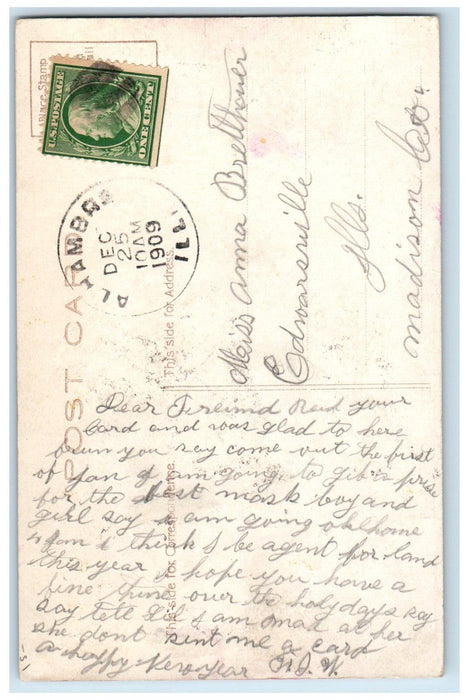 Place Stamp
U.S. POSTAGE
ONE CENT
ALHAMBRA
DEC
25
10AM
1909
ILL.
POST CARD
This side for Address.
This side for Correspondence.
Miss Anna Brethauer
Edwarsville
Ills.
Madison Co.
Dear Freind Recd your
Card and was glad to here
you say come out the first
of Jan I am going to gib a prise
for the best mask boy and
girl say I am going oklhome
Jan I think I be agent for land
this year I hope you have a
fine time over the holydays say
say tell I am mad at her
she dont sint me a card
a happy New year